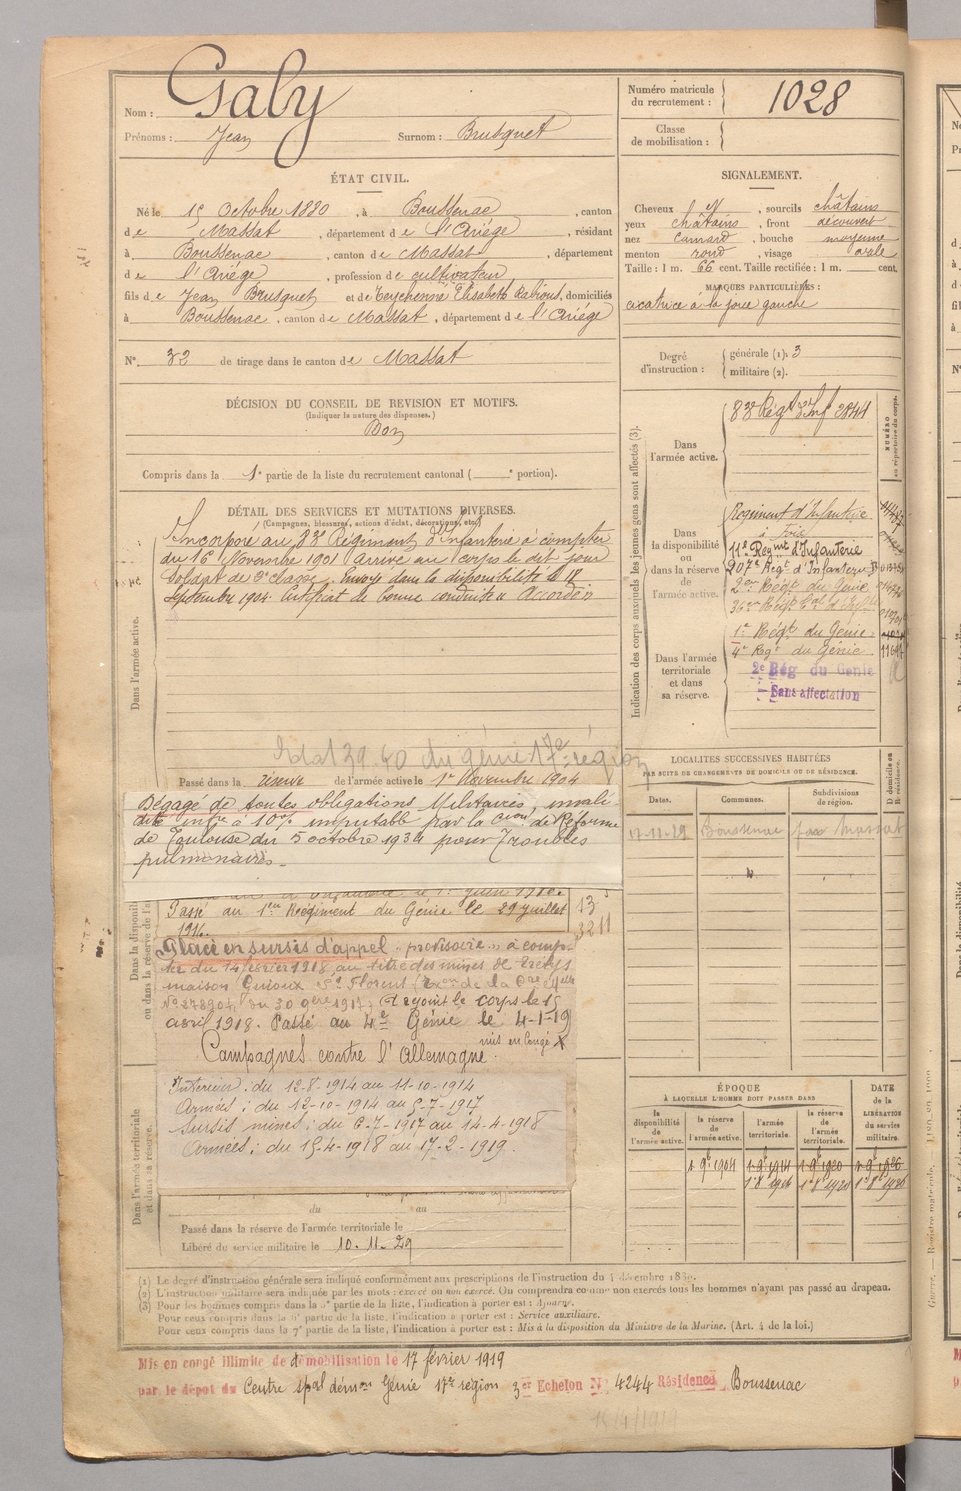 Nom : Galy
Prénoms : Jean Surnom : Brusquet
Numéro matricule du recrutement : 1028
Classe de mobilisation :
ÉTAT CIVIL.
Né le 15 Octobre 1880, à Boussenac, canton
de Massat, département de l'Ariège, résidant
à Boussenac, canton de Massat, département
de l'Ariège, profession de cultivateur
fils de Jean Brusquet et de Teychenné Elisabeth, domiciliés
à Boussenac, canton de Massat, département de l'Ariège
N° 32 de tirage dans le canton de Massat
SIGNALEMENT.
Cheveux et, sourcils châtains
yeux châtains, front découvert
nez Camard, bouche moyenne
menton rond, visage ovale
Taille : 1 m. 66 cent. Taille rectifiée : 1 m. cent.
MARQUES PARTICULIÈRES :
cicatrice à la joue gauche
Degré d'instruction : générale (1): 3
militaire (2).
DÉCISION DU CONSEIL DE REVISION ET MOTIFS.
(Indiquer la nature des dispenses.)
Bon
Compris dans la 1e partie de la liste du recrutement cantonal ( e portion).
DÉTAIL DES SERVICES ET MUTATIONS DIVERSES.
(Campagnes, blessures, actions d'éclat, décorations, etc.)
Dans l'armée active.
Incorporé au 83e Régiment d'Infanterie à compter
du 16 Novembre 1901 Arrivé au corps le dit jour
Soldat de 2e classe. Envoyé dans la disponibilité le 18
Septembre 1904. Certificat de bonne conduite « Accordé »
39-40 du génie 17e région
Passé dans la réserve de l'armée active le 1er Novembre 1904
Dégagé de toutes obligations Militaires, invali-
dité infre à 10% imputable par la Cion de Réforme
de Toulouse du 5 octobre 1934 pour Troubles
pulmonaires.
Passé au 1er Régiment du Génie le 29 juillet
1916.
Placé en sursis d'appel « provisoire » à comp-
ter du 14 février 1918, au titre des mines de
maison St Florent
N° 278904 du 30 9bre 1917; Rejoint le corps le 15
avril 1918. Passé au 4e Génie le 4-1-19
mis en Congé X
Campagnes contre l'Allemagne.
Intérieur : du 12-8-1914 au 11-10-1914
Armées : du 12-10-1914 au 5-7-1917
Sursis mines : du 6-7-1917 au 14-4-1918
Armées : du 15-4-1918 au 17-2-1919.
Dans l'armée territoriale et dans sa réserve.
du au
Passé dans la réserve de l'armée territoriale le
Libéré du service militaire le 10.11.29
Indication des corps auxquels les jeunes gens sont affectés (3).
NUMÉRO au répertoire du corps.
Dans l'armée active.
83e Régt d'Inf 2844
Dans la disponibilité ou dans la réserve de l'armée active.
Régiment d'Infanterie
à Foix
11e Regimt d'Infanterie
207e Regt d'Infanterie
2e Régt du Génie
Dans l'armée territoriale et dans sa réserve.
1er Régt du Génie
4e Rgt du Génie
2e Rég du Génie
Sans affectation
LOCALITÉS SUCCESSIVES HABITÉES
PAR SUITE DE CHANGEMENTS DE DOMICILE OU DE RÉSIDENCE.
Dates. Communes. Subdivisions de région. D domicile ou R résidence.
17-11-29 Boussenac par Massat
ÉPOQUE
À LAQUELLE L'HOMME DOIT PASSER DANS
la disponibilité de l'armée active.
la réserve de l'armée active.
l'armée territoriale.
la réserve de l'armée territoriale.
DATE de la LIBÉRATION du service militaire.
1er 9bre 1904 1er 9bre 1914 1er 9bre 1920 1er 9bre 1926
(1) Le degré d'instruction générale sera indiqué conformément aux prescriptions de l'instruction du
(2) L'instruction militaire sera indiquée par les mots : exercé ou non exercé. On comprendra comme non exercés tous les hommes n'ayant pas passé au drapeau.
(3) Pour les hommes compris dans la partie de la liste, l'indication à porter est : Ajourné.
Pour ceux compris dans la partie de la liste, l'indication à porter est : Service auxiliaire.
Pour ceux compris dans la 7e partie de la liste, l'indication à porter est : Mis à la disposition du Ministre de la Marine. (Art. 4 de la loi.)
Mis en congé illimité de démobilisation le 17 février 1919
par le dépôt du Centre spal démon Génie 17e région 3er Echelon N° 4244 Résidence Boussenac